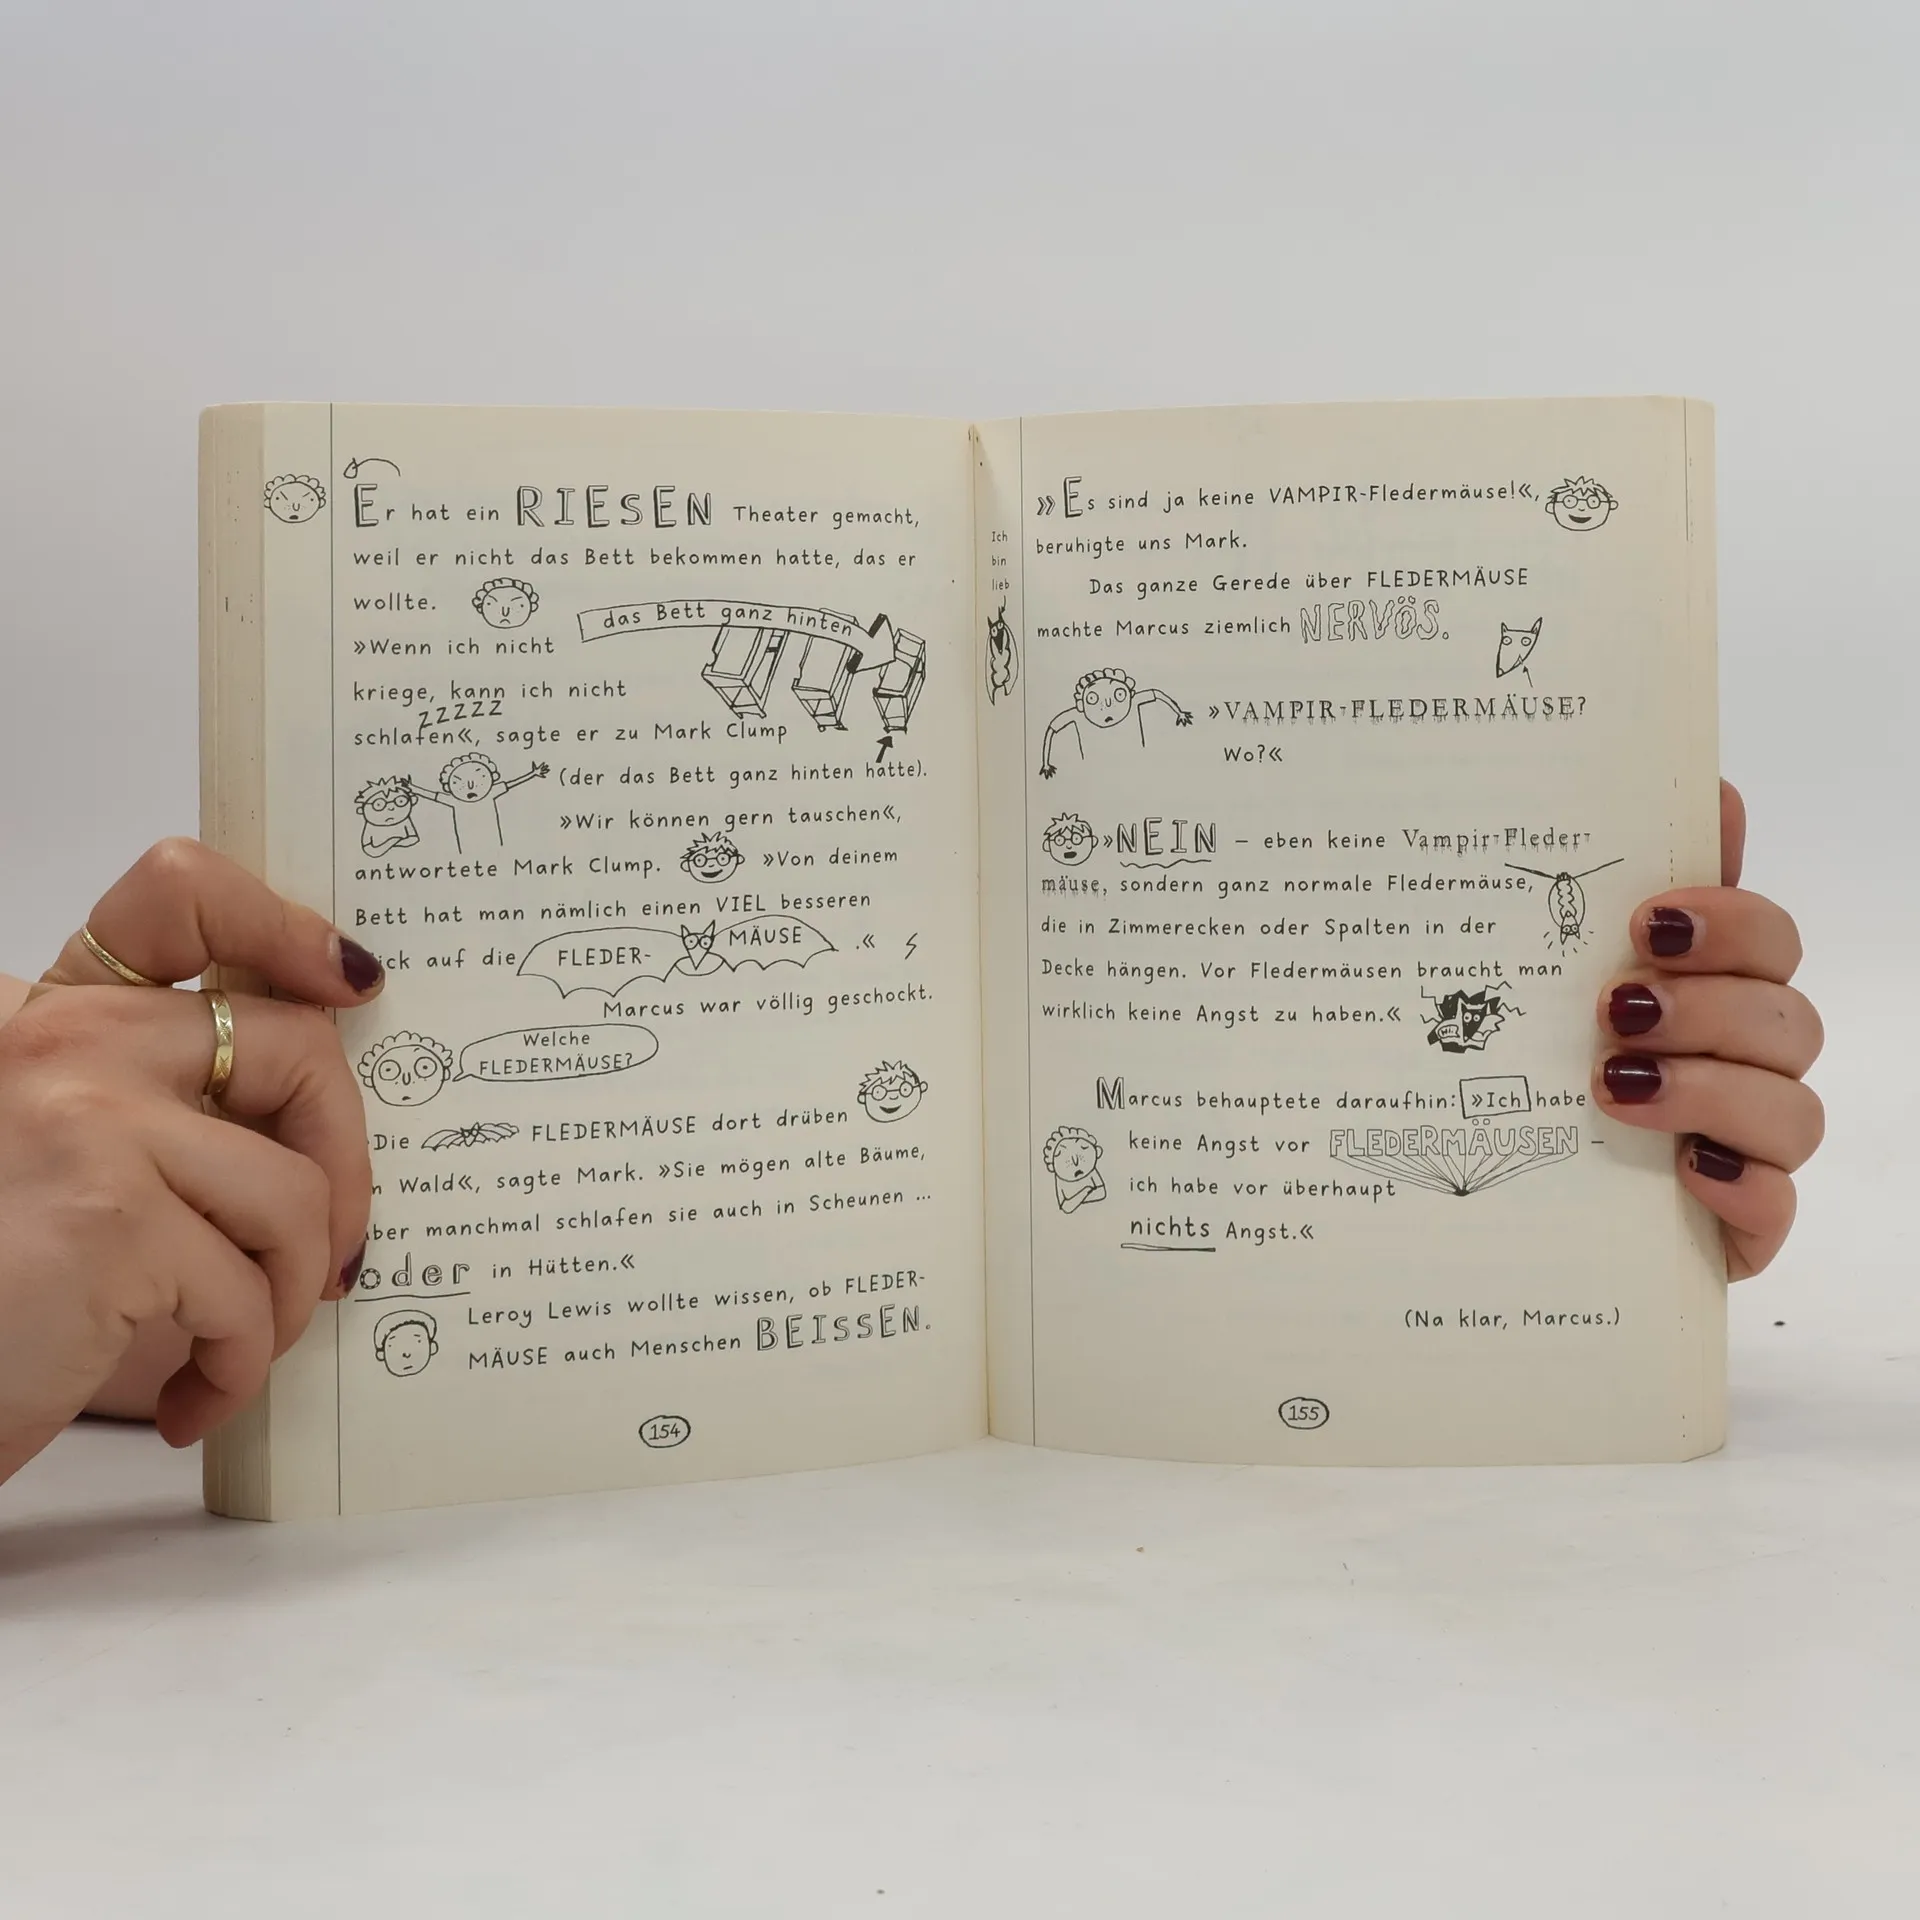 Er hat ein RIESEN Theater gemacht,
weil er nicht das Bett bekommen hatte, das er
wollte.
das Bett ganz hinten
»Wenn ich nicht
kriege, kann ich nicht
zzzzz
schlafen«, sagte er zu Mark Clump
(der das Bett ganz hinten hatte).
»Wir können gern tauschen«,
antwortete Mark Clump. »Von deinem
Bett hat man nämlich einen VIEL besseren
ick auf die FLEDER- MÄUSE .«
Marcus war völlig geschockt.
Welche
FLEDERMÄUSE?
Die FLEDERMÄUSE dort drüben
n Wald«, sagte Mark. »Sie mögen alte Bäume,
ber manchmal schlafen sie auch in Scheunen ...
oder in Hütten.«
Leroy Lewis wollte wissen, ob FLEDER-
MÄUSE auch Menschen BEISSEN.
154
Ich
bin
lieb
»Es sind ja keine VAMPIR-Fledermäuse!«,
beruhigte uns Mark.
Das ganze Gerede über FLEDERMÄUSE
machte Marcus ziemlich NERVÖS.
»VAMPIR-FLEDERMÄUSE?
Wo?«
»NEIN – eben keine Vampir-Fleder-
mäuse, sondern ganz normale Fledermäuse,
die in Zimmerecken oder Spalten in der
Decke hängen. Vor Fledermäusen braucht man
wirklich keine Angst zu haben.«
Marcus behauptete daraufhin: »Ich habe
keine Angst vor FLEDERMÄUSEN –
ich habe vor überhaupt
nichts Angst.«
(Na klar, Marcus.)
155